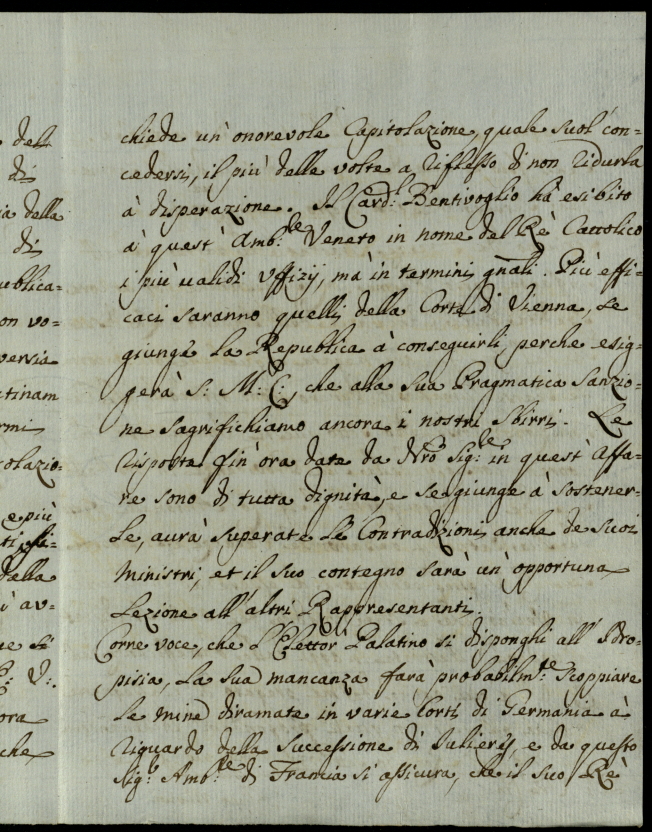 dell
di
ia della
di
ublica=
on vo=
versia
tinam
rmi
colazio=
e più
della
i av=
ue si
ora
che
chiede un' onorevole Capitolazione, quale suol con=
cedersi, il più delle volte a riflesso di non ridurla
à disperazione. Il Card: Bentivoglio hà esibito
à quest' Amb:re Veneto in nome del Rè Cattolico
i più validi Uffizij, mà in termini gnãli. Più effi=
caci saranno quelli della Corte di Vienna, se
giunge la Republica à conseguirli, perche esig=
gerà S: M: C:, che alla Sua Pragmatica Sanzio=
ne sagrifichiamo ancora i nostri Sbirri. Le
risposte fin' ora date da Nrõ Sig:re in quest' Affa=
re sono di tutta dignità, e se giunge à sostener=
le, aurà superate le Contradizioni anche de suoi
Ministri, et il suo contegno sarà un' opportuna
Lezione all' altri Rappresentanti.
Corre voce, che l'Elettor Palatino si disponghi all' Idro=
pisia, la sua mancanza farà probabilm:te scoppiare
le mine diramate in varie Corti di Germania à
riguardo della Successione di Julierij, e da questo
Sig:r Amb:re di Francia si assicura, che il suo Rè